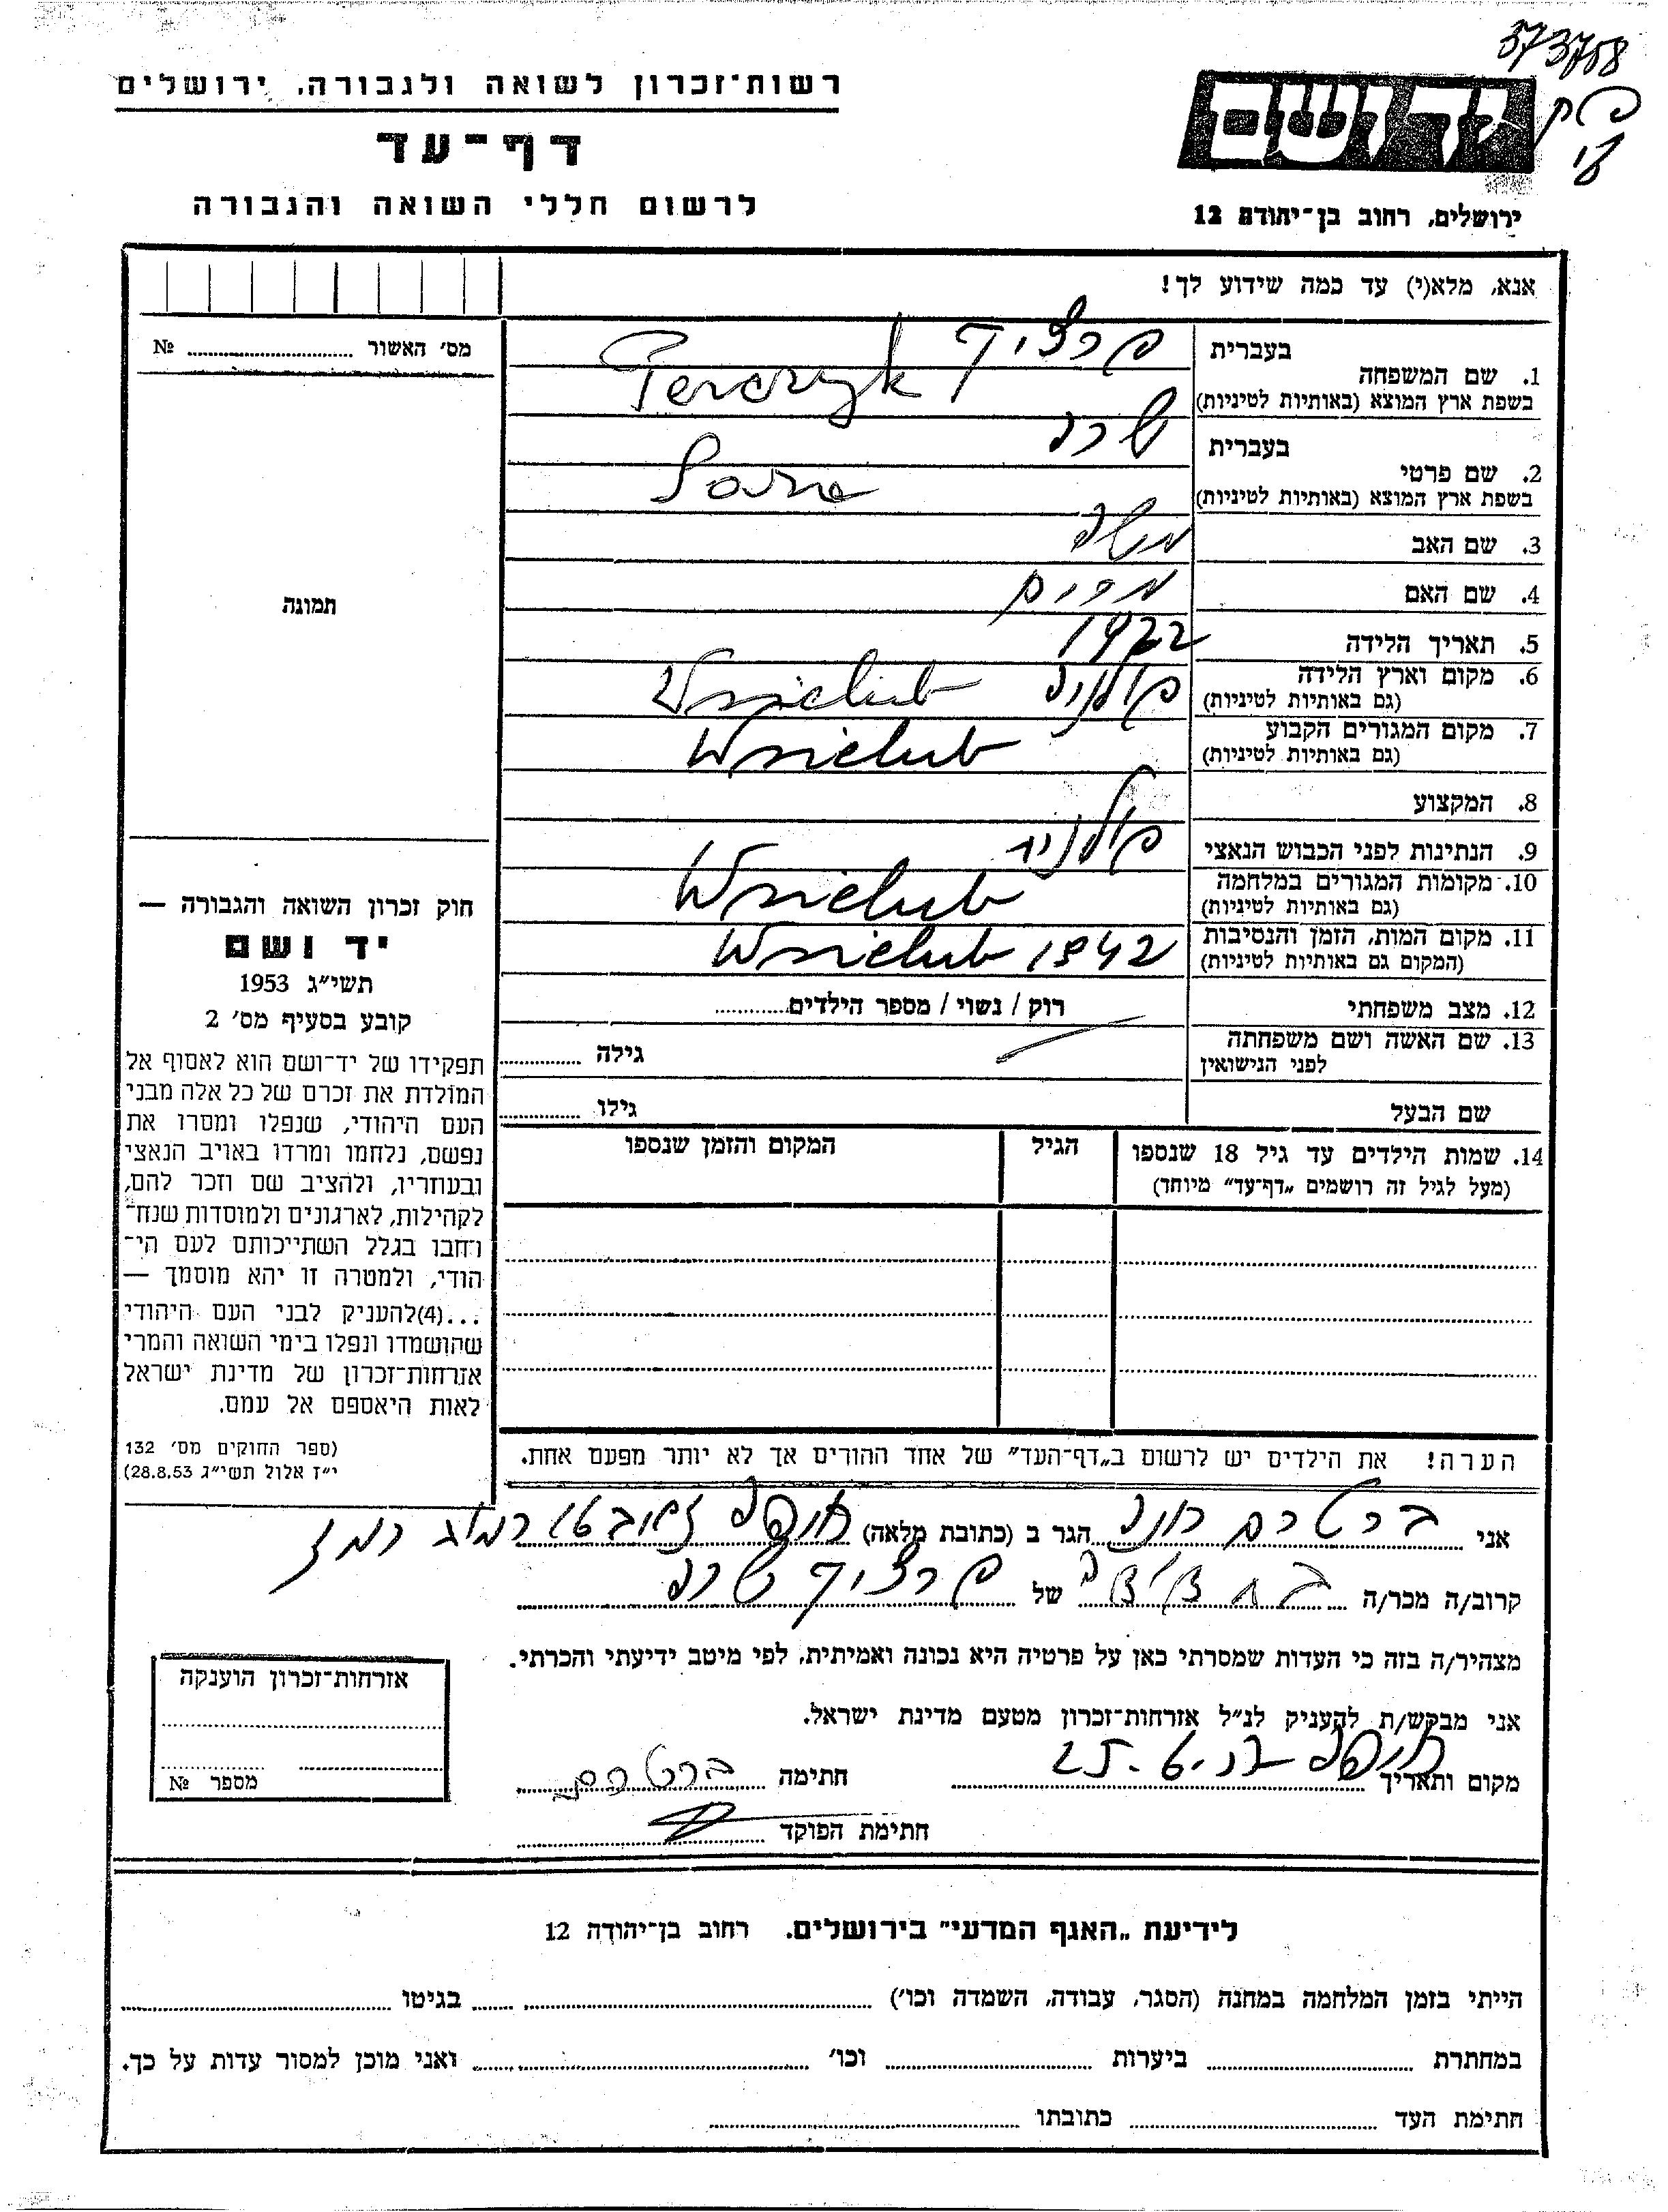 373758
רשות־זכרון לשואה ולגבורה, ירושלים
דף־עד
לרשום חללי השואה והגבורה
יד ושם
ירושלים, רחוב בן־יהודה 12
אנא, מלא(י) עד כמה שידוע לך!
מס׳ האשור № ........
תמונה
1. שם המשפחה בעברית פרציק
בשפת ארץ המוצא (באותיות לטיניות) Perczyk
2. שם פרטי בעברית שרה
בשפת ארץ המוצא (באותיות לטיניות)
3. שם האב משה
4. שם האם מרים
5. תאריך הלידה 1922
6. מקום וארץ הלידה (גם באותיות לטיניות) פולניה Wrzielub
7. מקום המגורים הקבוע (גם באותיות לטיניות) Wrzielub
8. המקצוע
9. הנתינות לפני הכבוש הנאצי פולניה
10. מקומות המגורים במלחמה (גם באותיות לטיניות) Wrzielub
11. מקום המות, הזמן והנסיבות (המקום גם באותיות לטיניות) Wrzielub 1942
12. מצב משפחתי רוק / נשוי / מספר הילדים........
13. שם האשה ושם משפחתה לפני הנישואין גילה ........
שם הבעל גילו ........
14. שמות הילדים עד גיל 18 שנספו (מעל לגיל זה רושמים „דף־עד״ מיוחד) הגיל המקום והזמן שנספו
הערה! את הילדים יש לרשום ב„דף־העד״ של אחד ההורים אך לא יותר מפעם אחת.
חוק זכרון השואה והגבורה —
יד ושם
תשי״ג 1953
קובע בסעיף מס׳ 2
תפקידו של יד־ושם הוא לאסוף אל
המולדת את זכרם של כל אלה מבני
העם היהודי, שנפלו ומסרו את
נפשם, נלחמו ומרדו באויב הנאצי
ובעוזריו, ולהציב שם וזכר להם,
לקהילות, לארגונים ולמוסדות שנח־
רחבו בגלל השתייכותם לעם הי־
הודי, ולמטרה זו יהא מוסמך —
...(4)להעניק לבני העם היהודי
שהושמדו ונפלו בימי השואה והמרי
אזרחות־זכרון של מדינת ישראל
לאות היאספם אל עמם.
(ספר החוקים מס׳ 132
י״ז אלול תשי״ג 28.8.53)
אני ברטרם הגר ב (כתובת מלאה) חיפה
קרוב/ה מכר/ה של פרציק שרה
מצהיר/ה בזה כי העדות שמסרתי כאן על פרטיה היא נכונה ואמיתית, לפי מיטב ידיעתי והכרתי.
אני מבקש/ת להעניק לנ״ל אזרחות־זכרון מטעם מדינת ישראל.
מקום ותאריך חיפה חתימה ברטרם
חתימת הפוקד
אזרחות־זכרון הוענקה
מספר №
לידיעת „האגף המדעי״ בירושלים. רחוב בן־יהודה 12
הייתי בזמן המלחמה במחנה (הסגר, עבודה, השמדה וכו׳) ........ בגיטו ........
במחתרת ........ ביערות ........ וכו׳ ........ ואני מוכן למסור עדות על כך.
חתימת העד ........ כתובתו ........